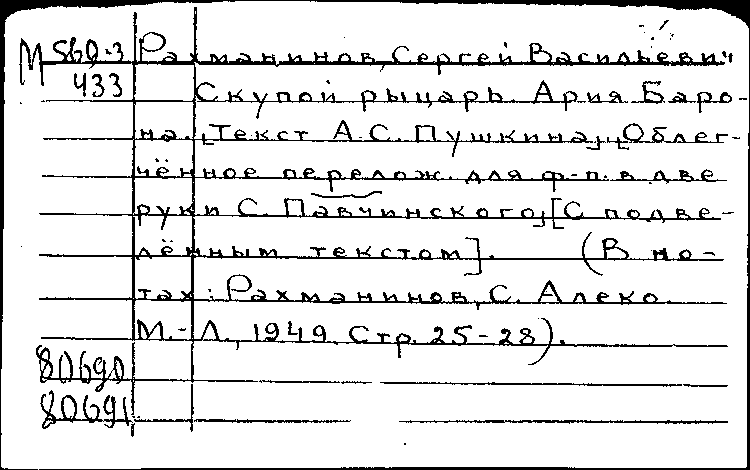 М 560-3 Рахманинов, Сергей Васильевич
433 Скупой рыцарь. Ария Баро-
на. [Текст А.С. Пушкина], [Облег-
чённое перелож. для ф-п. в две
руки С. Павчинского], [С подве-
дённым текстом]. (В но-
тах: Рахманинов, С. Алеко.
М.-Л., 1949. Стр. 25-28).
80690
80691